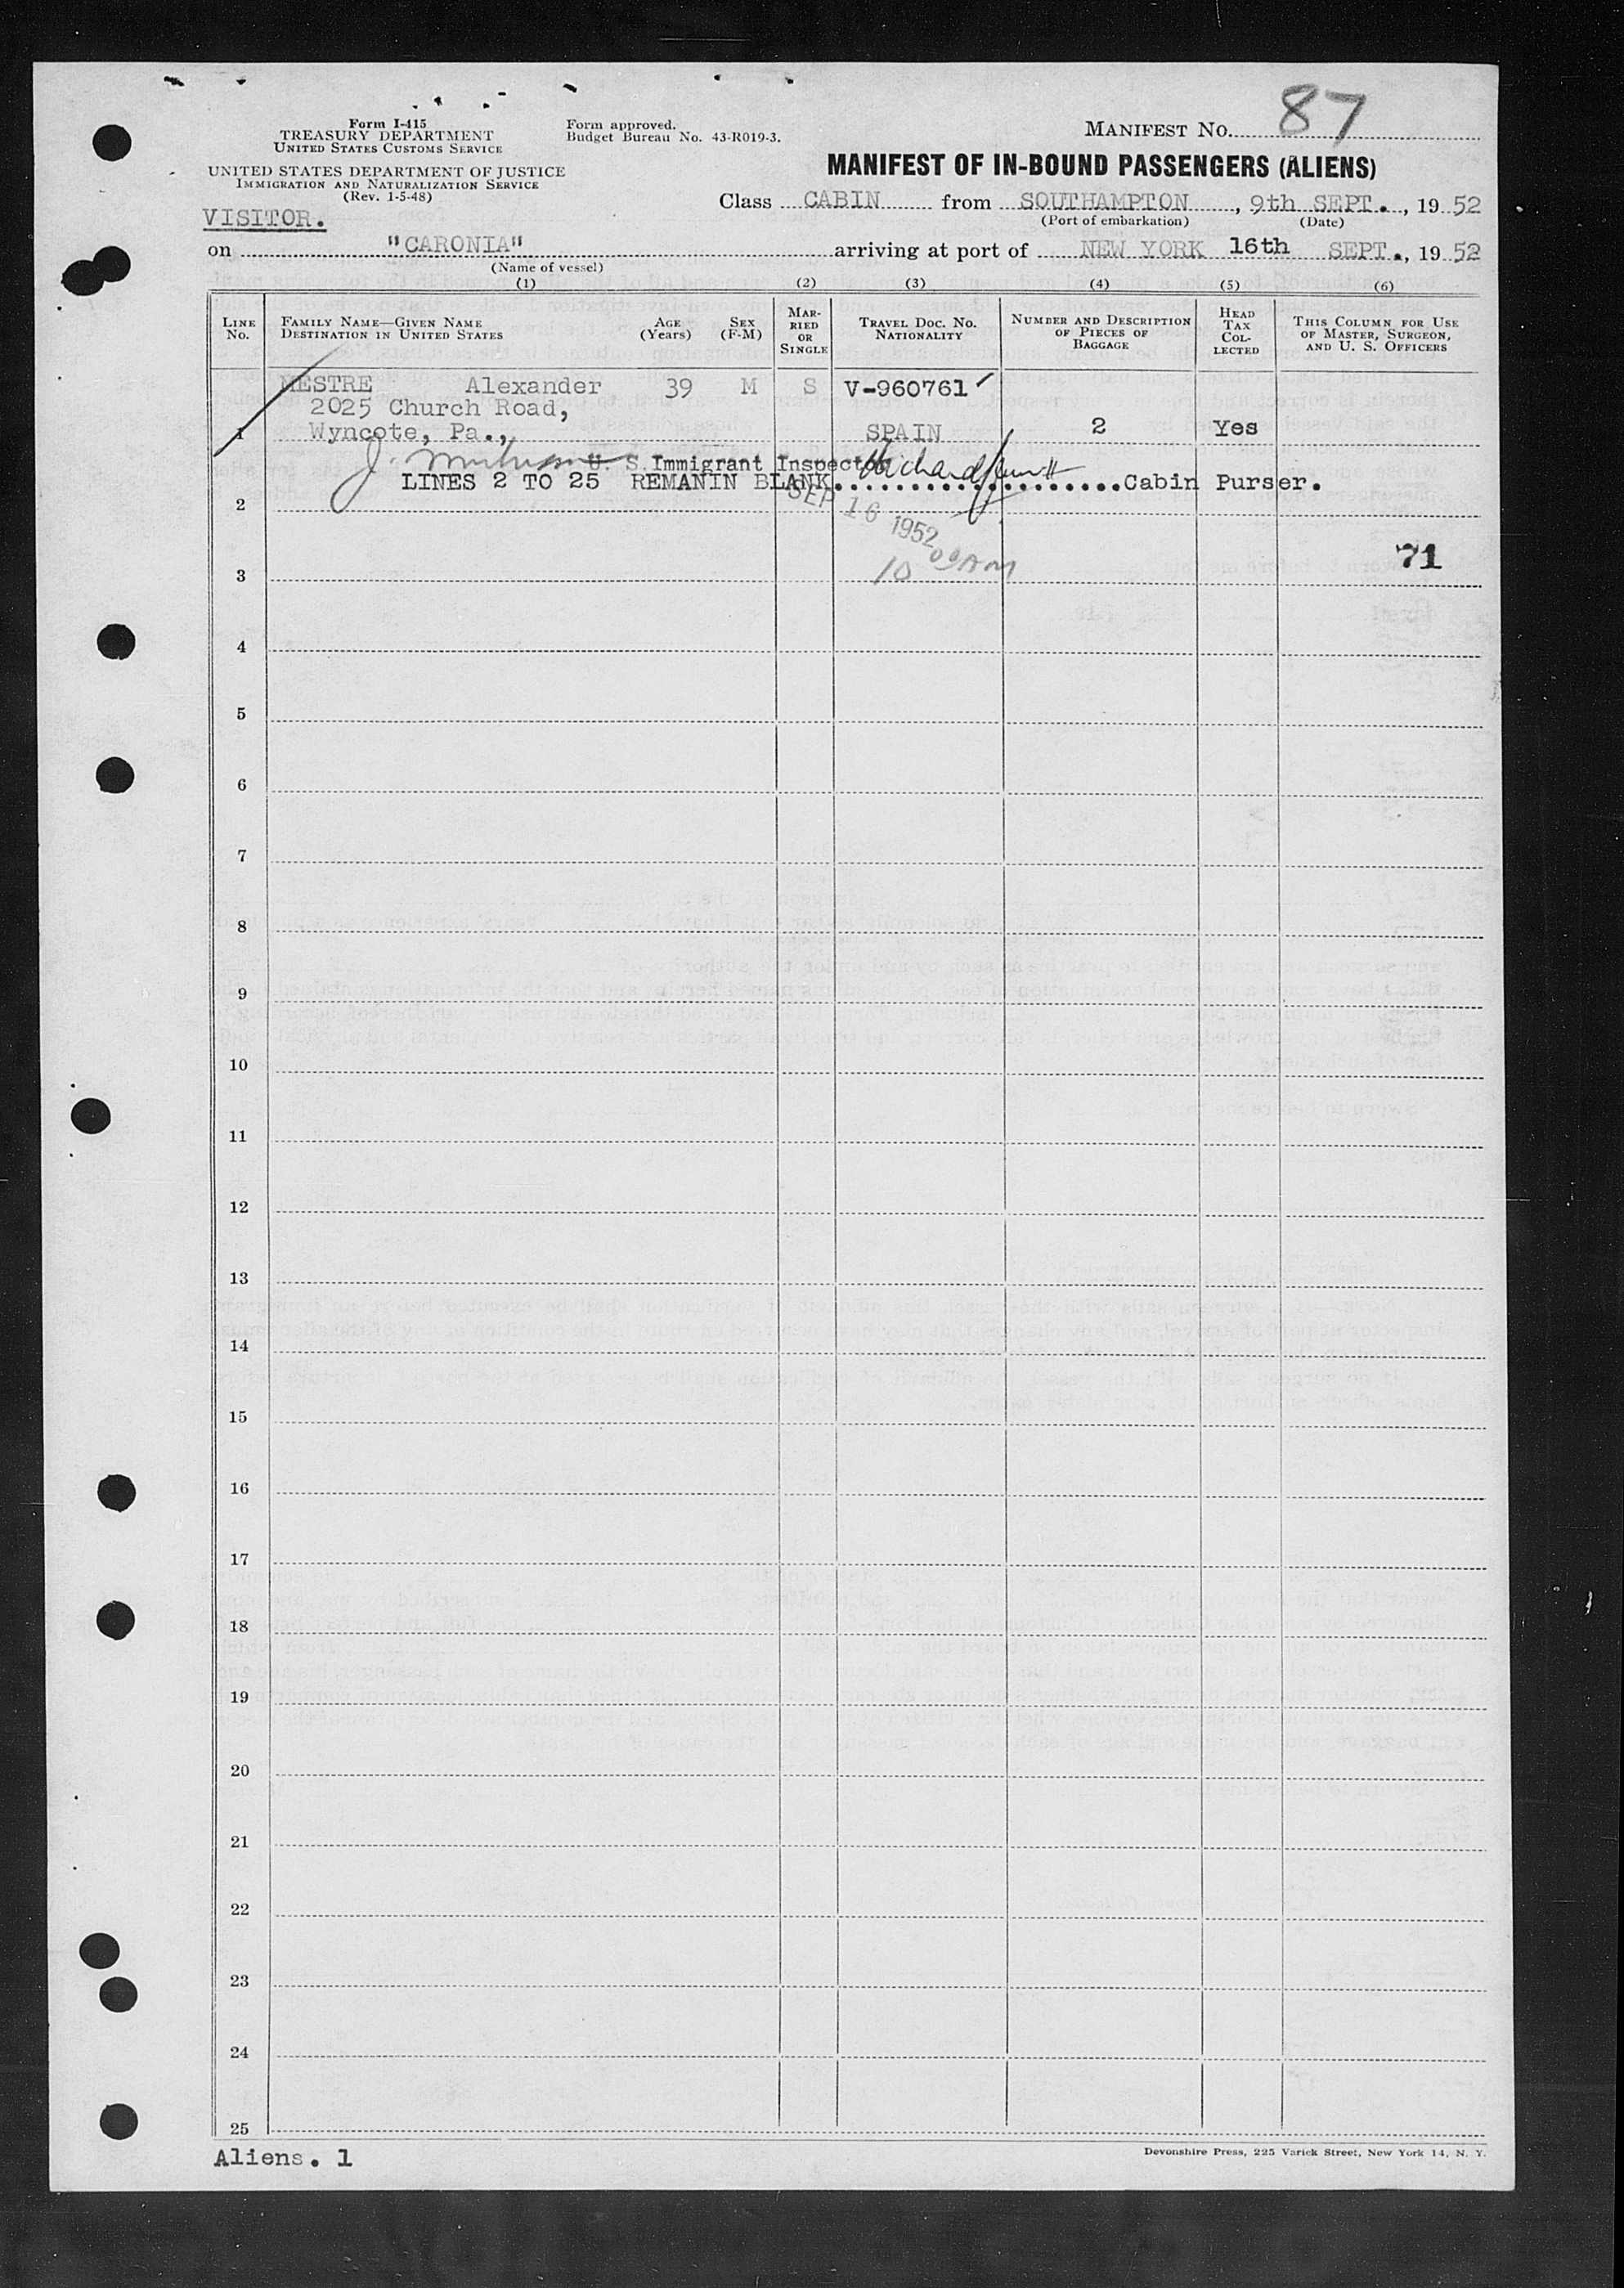 Form I-415
TREASURY DEPARTMENT
UNITED STATES CUSTOMS SERVICE
UNITED STATES DEPARTMENT OF JUSTICE
IMMIGRATION AND NATURALIZATION SERVICE
(Rev. 1-5-48)
Form approved.
Budget Bureau No. 43-R019-3.
MANIFEST NO. 87
MANIFEST OF IN-BOUND PASSENGERS (ALIENS)
Class CABIN from SOUTHAMPTON, 9th SEPT., 1952
(Port of embarkation) (Date)
VISITOR.
on "CARONIA" arriving at port of NEW YORK 16th SEPT., 1952
(Name of vessel)
(1) (2) (3) (4) (5) (6)
LINE NO. FAMILY NAME—GIVEN NAME DESTINATION IN UNITED STATES AGE (Years) SEX (F-M) MARRIED OR SINGLE TRAVEL DOC. NO. NATIONALITY NUMBER AND DESCRIPTION OF PIECES OF BAGGAGE HEAD TAX COLLECTED THIS COLUMN FOR USE OF MASTER, SURGEON, AND U. S. OFFICERS
MESTRE Alexander 39 M S V-960761 ✓
2025 Church Road,
1 Wyncote, Pa., SPAIN 2 Yes
J. U. S. Immigrant Inspector Richard
LINES 2 TO 25 REMANIN BLANK. Cabin Purser.
2 SEP 16 1952
71
3 10 09AM
4
5
6
7
8
9
10
11
12
13
14
15
16
17
18
19
20
21
22
23
24
25
Aliens. 1
Devonshire Press, 225 Varick Street, New York 14, N. Y.